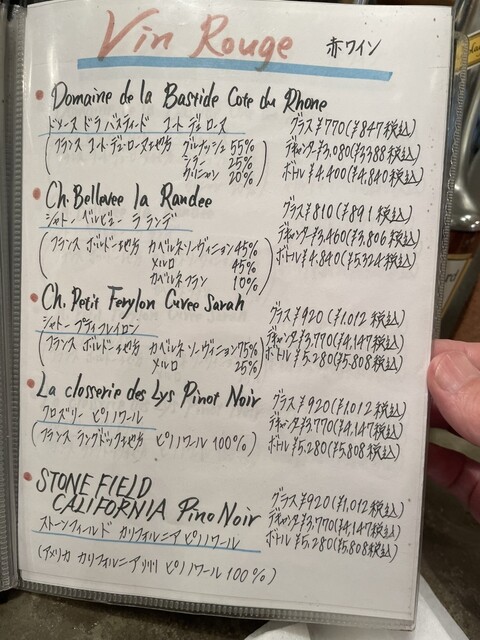 Vin Rouge 赤ワイン
Domaine de la Bastide Cote du Rhone
ドメーヌ ドラ バスティード コート デュ ローヌ
グラス ¥770(¥847税込)
(フランス コート・デュ・ローヌ地方 グルナッシュ 55%
デキャンター ¥3,080(¥3,388税込)
シラー 25%
ボトル ¥4,400(¥4,840税込)
20%)
Ch. Bellevee la Randee
シャトー ベルビュー ラ ランデ
グラス ¥810(¥891税込)
(フランス ボルドー地方 カベルネ・ソーヴィニョン 45%
デキャンタ ¥3,460(¥3,806税込)
メルロ 45%
ボトル ¥4,840(¥5,324税込)
カベルネフラン 10%)
Ch. Petit Ferylon Cuvee Sarah
シャトー プティフレイロン
グラス ¥920(¥1,012税込)
(フランス ボルドー地方 カベルネ ソーヴィニョン 75%
デキャンタ ¥3,770(¥4,147税込)
メルロ 25%)
ボトル ¥5,280(¥5,808税込)
La closserie des Lys Pinot Noir
クロズリー ピノノワール
グラス ¥920(¥1,012税込)
デキャンタ ¥3,770(¥4,147税込)
(フランス ラングドック地方 ピノノワール 100%)
ボトル ¥5,280(¥5,808税込)
STONE FIELD
CALIFORNIA Pino Noir
グラス ¥920(¥1,012税込)
デキャンタ ¥3,770(¥4,147税込)
ストーンフィールド カリフォルニア ピノノワール
ボトル ¥5,280(¥5,808税込)
(アメリカ カリフォルニア州 ピノノワール 100%)